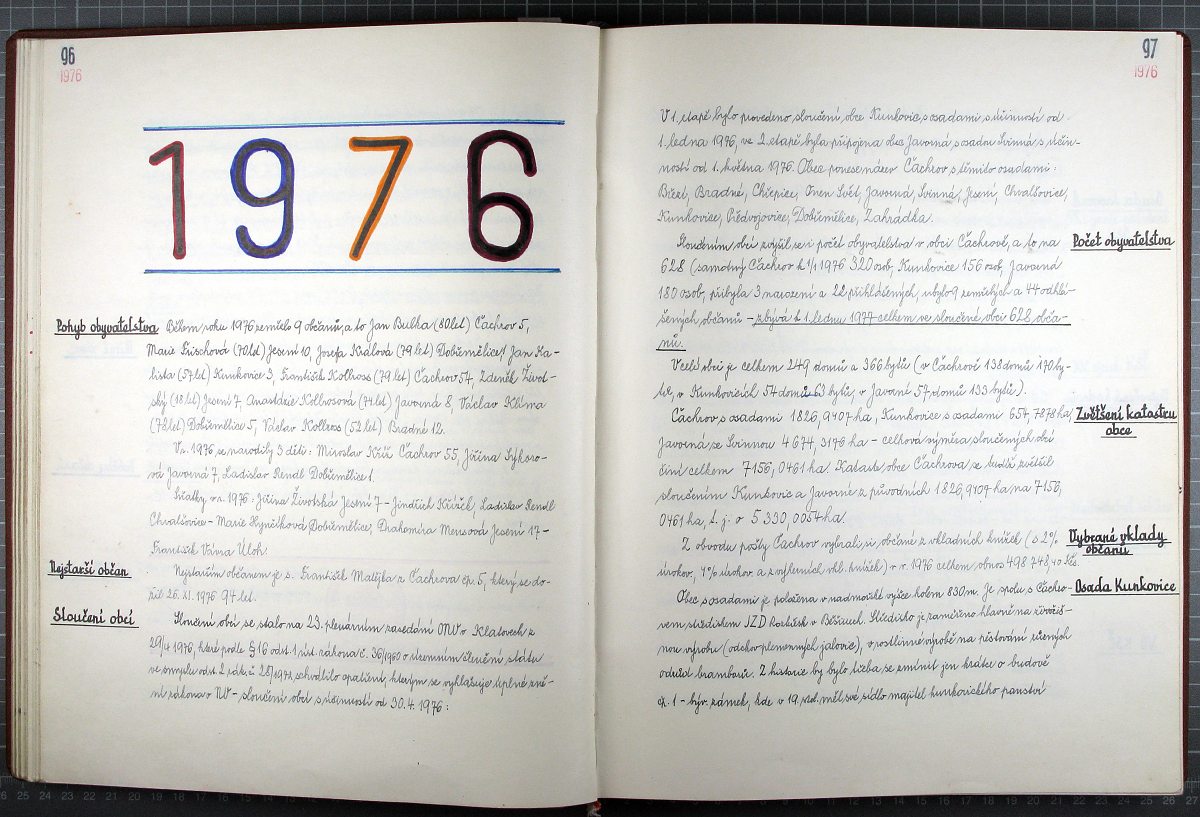 96
1976
1976
Pohyb obyvatelstva
Během roku 1976 zemřelo 9 občanů, a to Jan Bulka (80 let) Čachrov 5,
Marie Frischová (70 let) Jesení 10, Josefa Králová (79 let) Dobřemělice 1, Jan Ka-
lista (57 let) Kunkovice 3, František Kollross (79 let) Čachrov 54, Zdeněk Život-
ský (18 let) Jesení 7, Anastázie Kolbosová (74 let) Javorná 8, Václav Klíma
(78 let) Dobřemělice 5, Václav Kollros (52 let) Bradné 12.
V r. 1976 se narodily 3 děti: Miroslav Kříž Čachrov 55, Jiřina Sýkoro-
vá Javorná 7, Ladislav Rendl Dobřemělice 1.
Sňatky v r. 1976: Jiřina Životská Jesení 7 - Jindřich Ladislav Rendl
Chvalšovice - Marie Hynčíková Dobřemělice, Drahomíra Mensová Jesení 17 -
František Vávra Úloh.
Nejstarší občan
Nejstarším občanem je s. František Matějka z Čachrova čp. 5, který se do-
žil 26. XI. 1976 94 let.
Sloučení obcí
Sloučení obcí se stalo na 23. plenárním zasedání ONV v Klatovech z
29/4 1976, které podle § 16 odst. 1 úst. zákona č. 36/1960 o územním členění státu
ve smyslu odst. 2 zák. č. schválilo opatření, kterým se vyhlašuje úplné zně-
ní zákona o NV - sloučení obcí s účinností od 30. 4. 1976:
97
1976
V 1. etapě bylo provedeno sloučení obce Kunkovic s osadami s účinností od
1. ledna 1976, ve 2. etapě byla připojena obec Javorná s osadou Svinná s účin-
ností od 1. května 1976. Obec ponese název Čachrov s těmito osadami:
Březí, Bradné, Chřepice, Onen Svět, Javorná, Svinná, Jesení, Chvalšovice,
Kunkovice, Předvojovice, Dobřemělice, Zahrádka.
Počet obyvatelstva
Sloučením obcí zvýšil se i počet obyvatelstva v obci Čachrově, a to na
628 (samotný Čachrov k 1/1 1976 320 osob, Kunkovice 156 osob, Javorná
180 osob, přibyla 3 narození a 22 přihlášených, ubylo 9 zemřelých a 44 odhlá-
šených občanů - zbývá k 1. lednu 1977 celkem ve sloučené obci 628 obča-
nů.
V celé obci je celkem 249 domů a 366 bytů (v Čachrově 138 domů 170 by-
tů, v Kunkovicích 54 domů 63 bytů, v Javorné 57 domů 133 bytů).
Zvětšení katastru
obce
Čachrov s osadami 1826,9407 ha, Kunkovice s osadami 654,7878 ha,
Javorná se Svinnou 4 674,3176 ha - celková výměra sloučených obcí
činí celkem 7156,0461 ha. Katastr obce Čachrova se tudíž zvětšil
sloučením Kunkovic a Javorné z původních 1826,9407 ha na 7156,
0461 ha, t. j. o 5 330,0054 ha.
Vybrané vklady
občanů
Z obvodu pošty Čachrov vybrali si občané z vkladních knížek (s 2%
úrokov, 4% úrokov. a z výherních vkl. knížek) v r. 1976 celkem obnos 498 748,40 Kčs.
Osada Kunkovice
Obec s osadami je položena v nadmořské výšce kolem 830 m. Je spolu s Čachro-
vem střediskem JZD Rozvěsek v Běšinech. Středisko je zaměřeno hlavně na živočiš-
nou výrobu (odchov plemenných jalovic), v rostlinné výrobě na pěstování různých
odrůd brambor. Z historie by bylo třeba se zmínit jen krátce o budově
čp. 1 - býv. zámek, kde v 19. stol. měl své sídlo majitel kunkovického panství